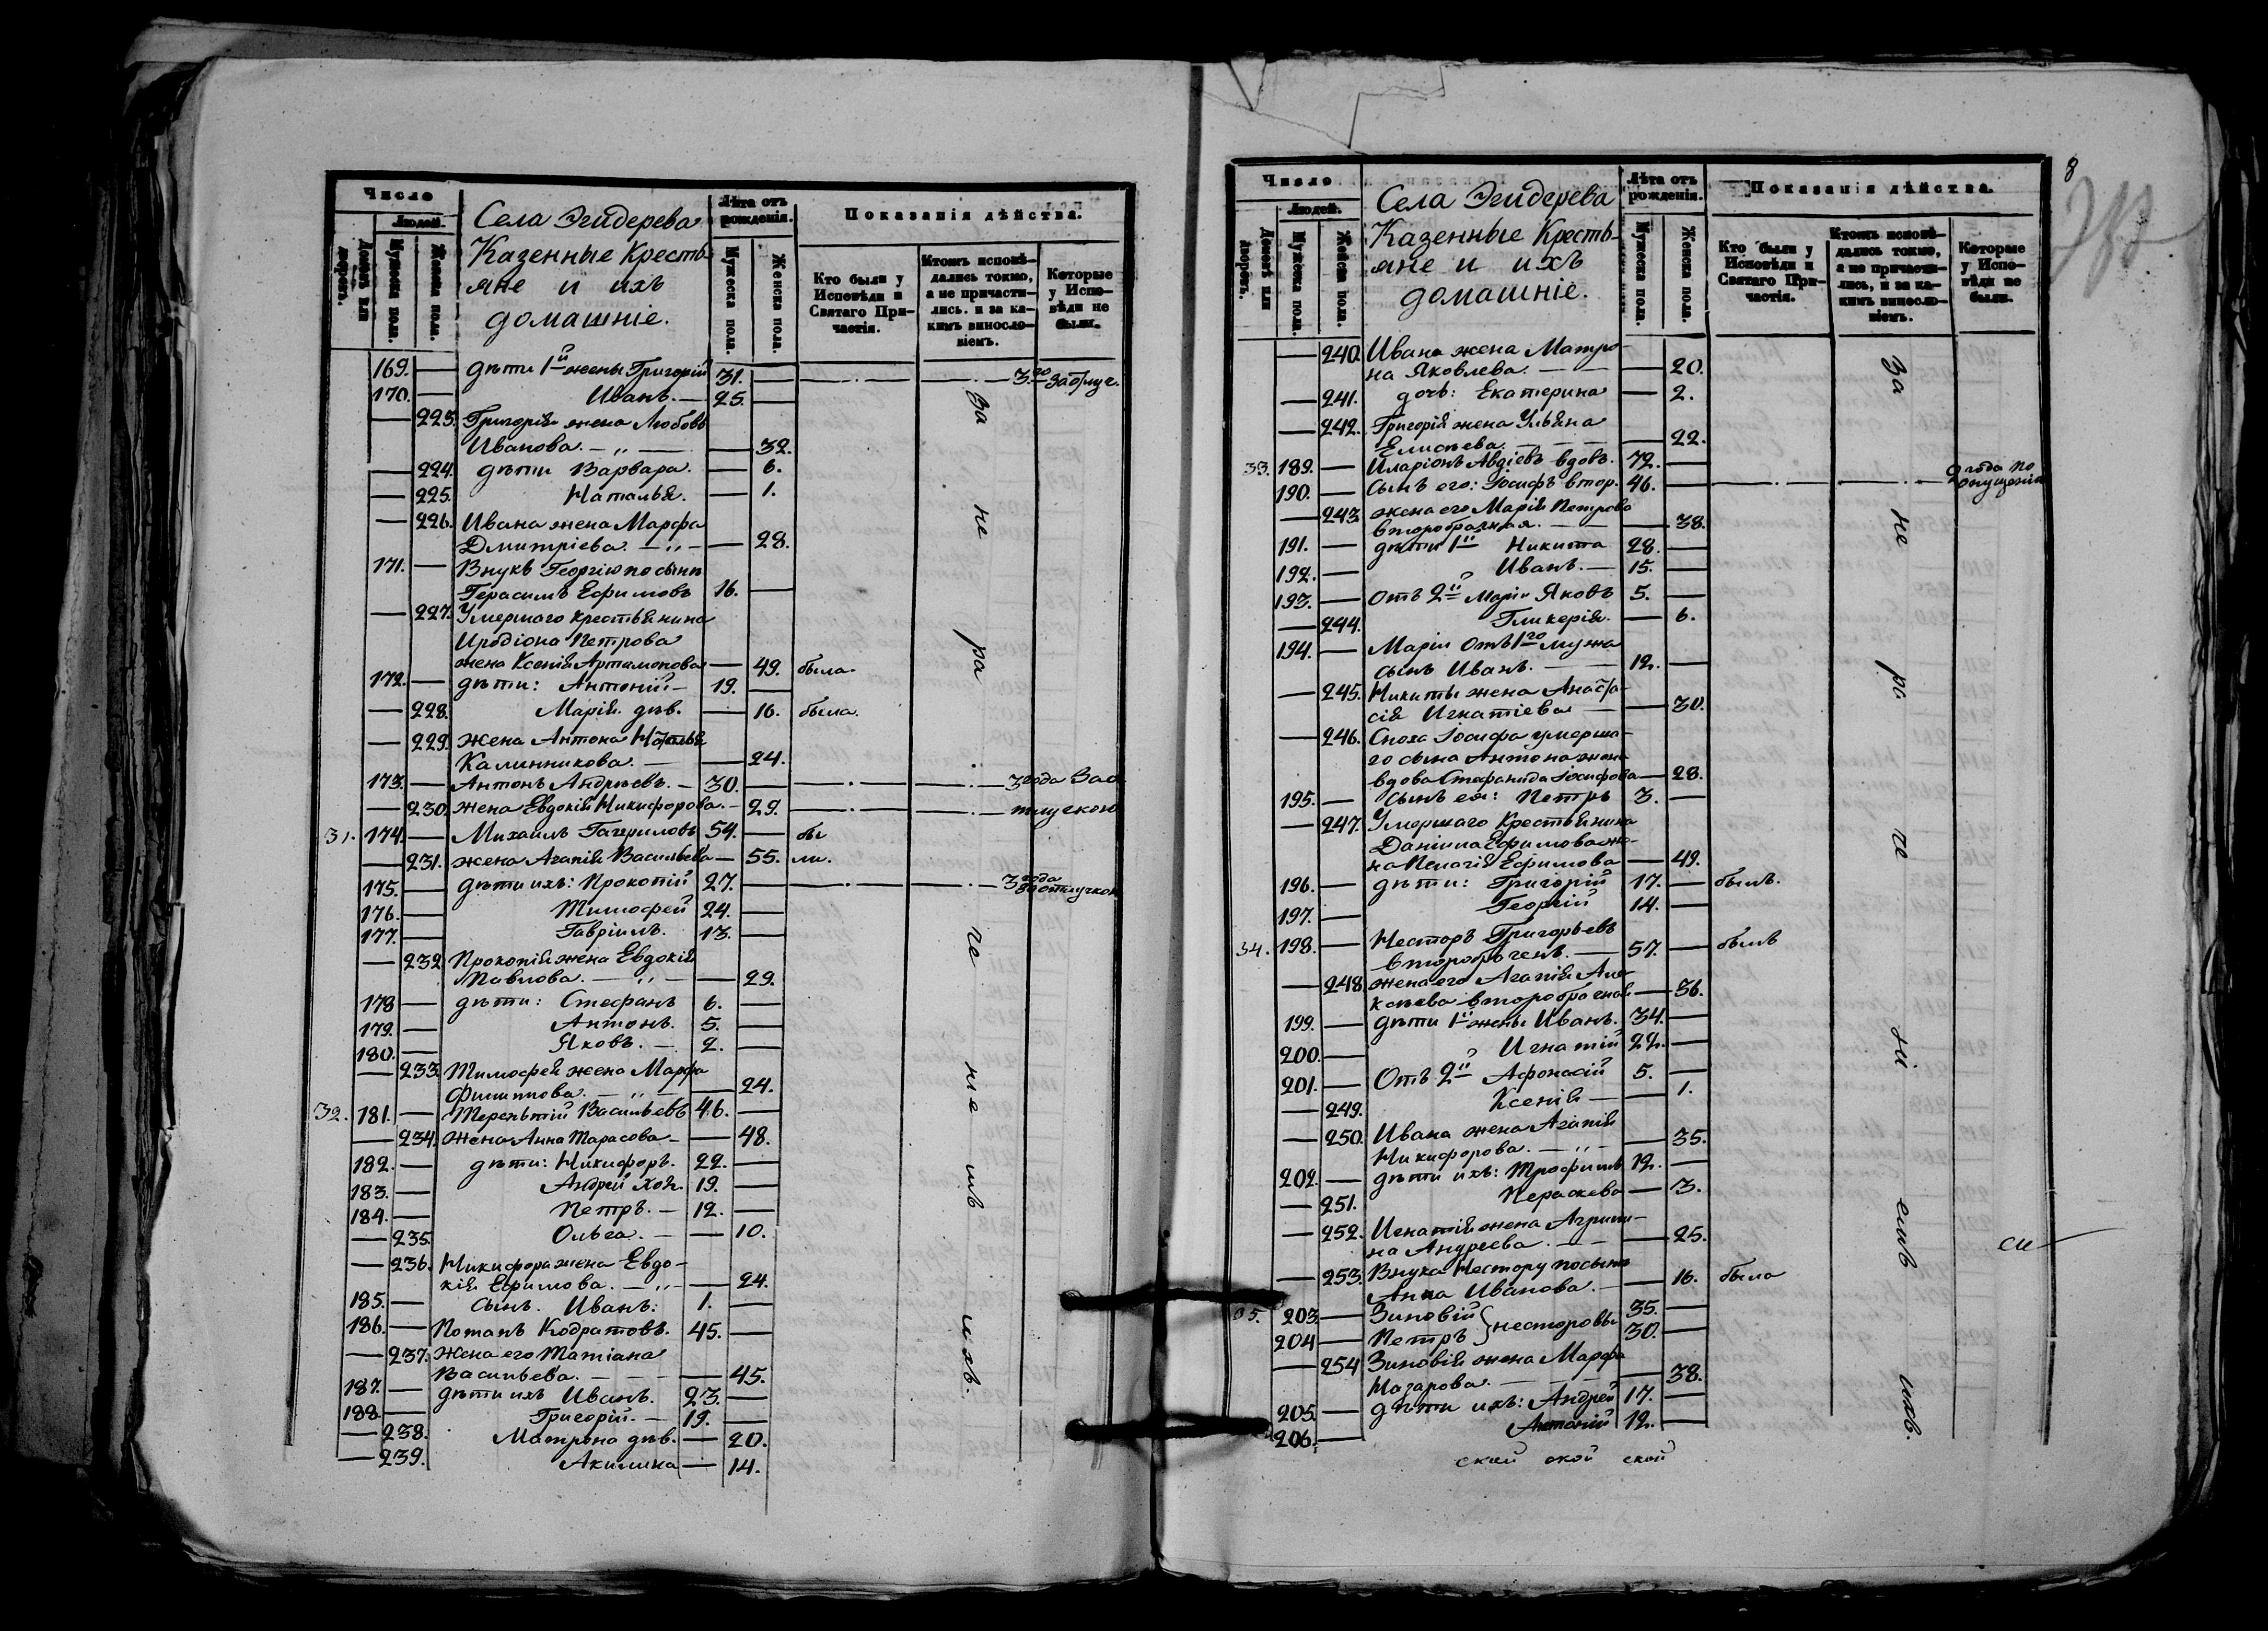 Число
Людей.
Домовъ или дворовъ.
Мужеска пола.
Женска пола.
Села Эейдерева
Казенные Кресть-
яне и ихъ
домашніе.
Лѣта отъ рожденія.
Мужеска пола.
Женска пола.
Показанія дѣйства.
Кто были у Исповѣди и Святаго Причастія.
Ктожъ исповѣдались токмо, а не причастились. и за какимъ винословіемъ.
Которые у Исповѣди не были.
169. — дѣти 1й жены Григорій 31. —
170. — Иванъ. — 25. —
— 223. Григорія жена Любовь
Иванова. — „ — — 32.
— 224. дѣти Варвара. — 6.
— 225. Наталья. — 1.
— 226. Ивана жена Марфа
Дмитріева. — „ — — 28.
171. — Внукъ Георгію по сынѣ
Герасимъ Ефимовъ 16. —
— 227. Умершаго крестьянина
Иродіона Петрова
жена Ксенія Артамонова — 49. была.
172. — дѣти: Антоній — 19. —
— 228. Марія дѣв. — 16. была.
— 229. жена Антона Наталья
Калинникова. — — 24.
173. — Антонъ Андреевъ. — 30. — 3 года за о-
— 230. жена Евдокія Никифорова. — 29. тлучкою
31. 174. — Михаилъ Гавриловъ 54. — бы
— 231. жена Агапія Васильева — 55. ли.
175. — дѣти ихъ: Прокопій 27. — 3 года за отлучкою
176. — Тимофей 24. —
177. — Гавріилъ. 13. —
— 232. Прокопія жена Евдокія
Павлова. — „ — — 29.
178 — дѣти: Стефанъ 6. —
179. — Антонъ. 5. —
180. — Яковъ. — 2. —
— 233. Тимофея жена Марфа
Филиппова. — „ — — 24.
32. 181. — Терентій Васильевъ 46. —
— 234. жена Анна Тарасова — — 48.
182. — дѣти: Никифоръ. 22. —
183. — Андрей хол. 19. —
184. — Петръ. — 12. —
— 235. Ольга. — — 10.
— 236. Никифора жена Евдо-
кія Ефимова. — „ — — 24.
185. — сынъ. Иванъ: 1. —
186. — Потапъ Кодратовъ. 45. —
— 237. Жена его Татіана
Васильева. — — — 45.
187. — дѣти ихъ Иванъ. 23. —
188. — Григорій. — 19. —
— 238. Матрона дѣв. — 20.
— 239. Акилина — 14.
за не ра че ні е мъ ихъ.
8
Число
Людей.
Домовъ или дворовъ.
Мужеска пола.
Женска пола.
Села Эейдерева
Казенные Кресть-
яне и ихъ
домашніе.
Лѣта отъ рожденія.
Мужеска пола.
Женска пола.
Показанія дѣйства.
Кто были у Исповѣди и Святаго Причастія.
Ктожъ исповѣдались токмо, а не причастились, и за какимъ винословіемъ.
Которые у Исповѣди не были.
— 240. Ивана жена Матро-
на Яковлева. — — — 20.
— 241. дочь: Екатерина — 2.
— 242. Григорія жена Ульяна
Елисеева. — — — 22.
33. 189. — Иларіонъ Авдіевъ вдовъ. 72. —
190. — Сынъ его: Іосифъ втор. 46. — 2 года по опущенію
— 243. жена его Марія Петрова
второбрачная. — — 38.
191. — дѣти 1й Никита 28. —
192. — Иванъ. — 15. —
193. — Отъ 2й Маріи Яковъ 5. —
— 244. Гликерія. — 6.
194. — Маріи отъ 1го мужа
сынъ Иванъ. — — 12. —
— 245. Никиты жена Анаста-
сія Игнатіева — — 30.
— 246. Сноха Іосифа умерша-
го сына Антона жена
вдова Стефанида Іосифова — 28.
195. — сынъ ея: Петръ 3. —
— 247. Умершаго Крестьянина
Даніила Ефимова же-
на Пелагія Ефимова — 49.
196. — дѣти: Григорій 17. — былъ.
197. — Георгій 14. —
34. 198. — Несторъ Григорьевъ
второбрачен. — 57. — былъ
— 248. жена его Агапія Але-
ксѣева второбрачная — 36.
199. — дѣти 1й жены Иванъ. 34. —
200. — Игнатій 22. —
201. — Отъ 2й Афонасій 5. —
— 249. Ксенія — — 1.
— 250. Ивана жена Агапія
Никифорова. — „ — — 35.
202. — дѣти ихъ: Трофимъ 12. —
— 251. Параскева — 3.
— 252. Игнатія жена Агрипи-
на Андреева. — — — 25.
— 253. Внука Нестору по сынѣ
Анна Иванова. — — 16. была
35. 203 — Зиновій 35. —
204 — Петръ } несторовы 30. —
— 254 Зиновія жена Марфа
Назарова. — — — 38.
205. — дѣти ихъ: Андрей 17. —
206. — Антоній 12. —
за не ра че ні емъ ихъ.
ской ской ской